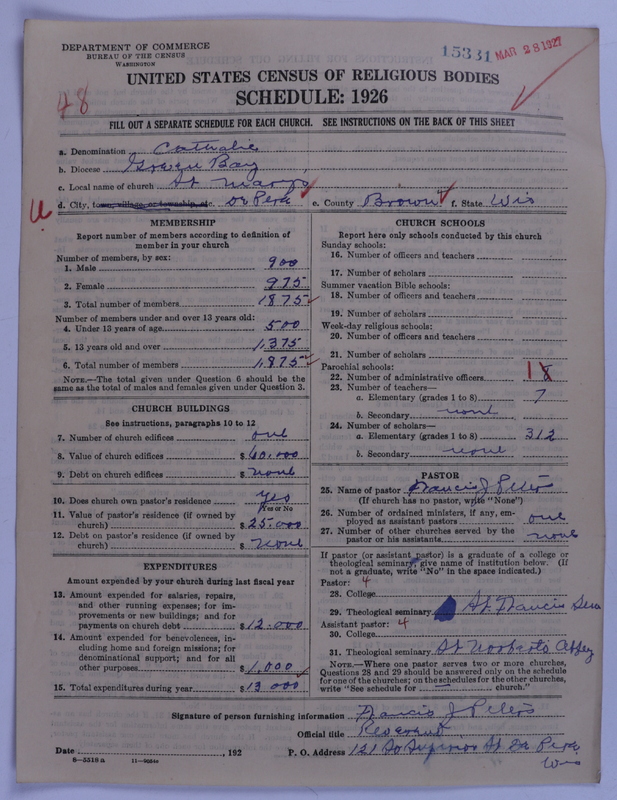 DEPARTMENT OF COMMERCE
BUREAU OF THE CENSUS
WASHINGTON
15331 MAR 28 1927
UNITED STATES CENSUS OF RELIGIOUS BODIES
SCHEDULE: 1926
48
FILL OUT A SEPARATE SCHEDULE FOR EACH CHURCH. SEE INSTRUCTIONS ON THE BACK OF THIS SHEET
a. Denomination Catholic
b. Diocese Green Bay
c. Local name of church St Marys
d. City, town, village, or township, etc. De Pere e. County Brown f. State Wis
MEMBERSHIP
Report number of members according to definition of
member in your church
Number of members, by sex:
1. Male 900
2. Female 975
3. Total number of members 1875
Number of members under and over 13 years old:
4. Under 13 years of age 500
5. 13 years old and over 1,375
6. Total number of members 1,875
NOTE.—The total given under Question 6 should be the
same as the total of males and females given under Question 3.
CHURCH BUILDINGS
See instructions, paragraphs 10 to 12
7. Number of church edifices one
8. Value of church edifices $ 60.000
9. Debt on church edifices $ none
10. Does church own pastor's residence Yes
Yes or No
11. Value of pastor's residence (if owned by
church) $ 25.000
12. Debt on pastor's residence (if owned by
church) $ none
EXPENDITURES
Amount expended by your church during last fiscal year
13. Amount expended for salaries, repairs,
and other running expenses; for im-
provements or new buildings; and for
payments on church debt $ 12.000
14. Amount expended for benevolences, in-
cluding home and foreign missions; for
denominational support; and for all
other purposes $ 1,000
15. Total expenditures during year $ 13 000
CHURCH SCHOOLS
Report here only schools conducted by this church
Sunday schools:
16. Number of officers and teachers
17. Number of scholars
Summer vacation Bible schools:
18. Number of officers and teachers
19. Number of scholars
Week-day religious schools:
20. Number of officers and teachers
21. Number of scholars
Parochial schools:
22. Number of administrative officers 1
23. Number of teachers—
a. Elementary (grades 1 to 8) 7
b. Secondary none
24. Number of scholars—
a. Elementary (grades 1 to 8) 312
b. Secondary none
PASTOR
25. Name of pastor Francis J Peters
(If church has no pastor, write "None")
26. Number of ordained ministers, if any, em-
ployed as assistant pastors one
27. Number of other churches served by the
pastor or his assistants none
If pastor (or assistant pastor) is a graduate of a college or
theological seminary, give name of institution below. (If
not a graduate, write "No" in the space indicated.)
Pastor: 4
28. College
29. Theological seminary St Francis Sem
Assistant pastor: 4
30. College
31. Theological seminary St Norberts Abbey
NOTE.—Where one pastor serves two or more churches,
Questions 28 and 29 should be answered only on the schedule
for one of the churches; on the schedules for the other churches,
write "See schedule for church."
Signature of person furnishing information Francis J Peters
Official title Reverend
Date , 192 P. O. Address 121 So Superior St De Pere
Wis
8—5318a 11—9024a